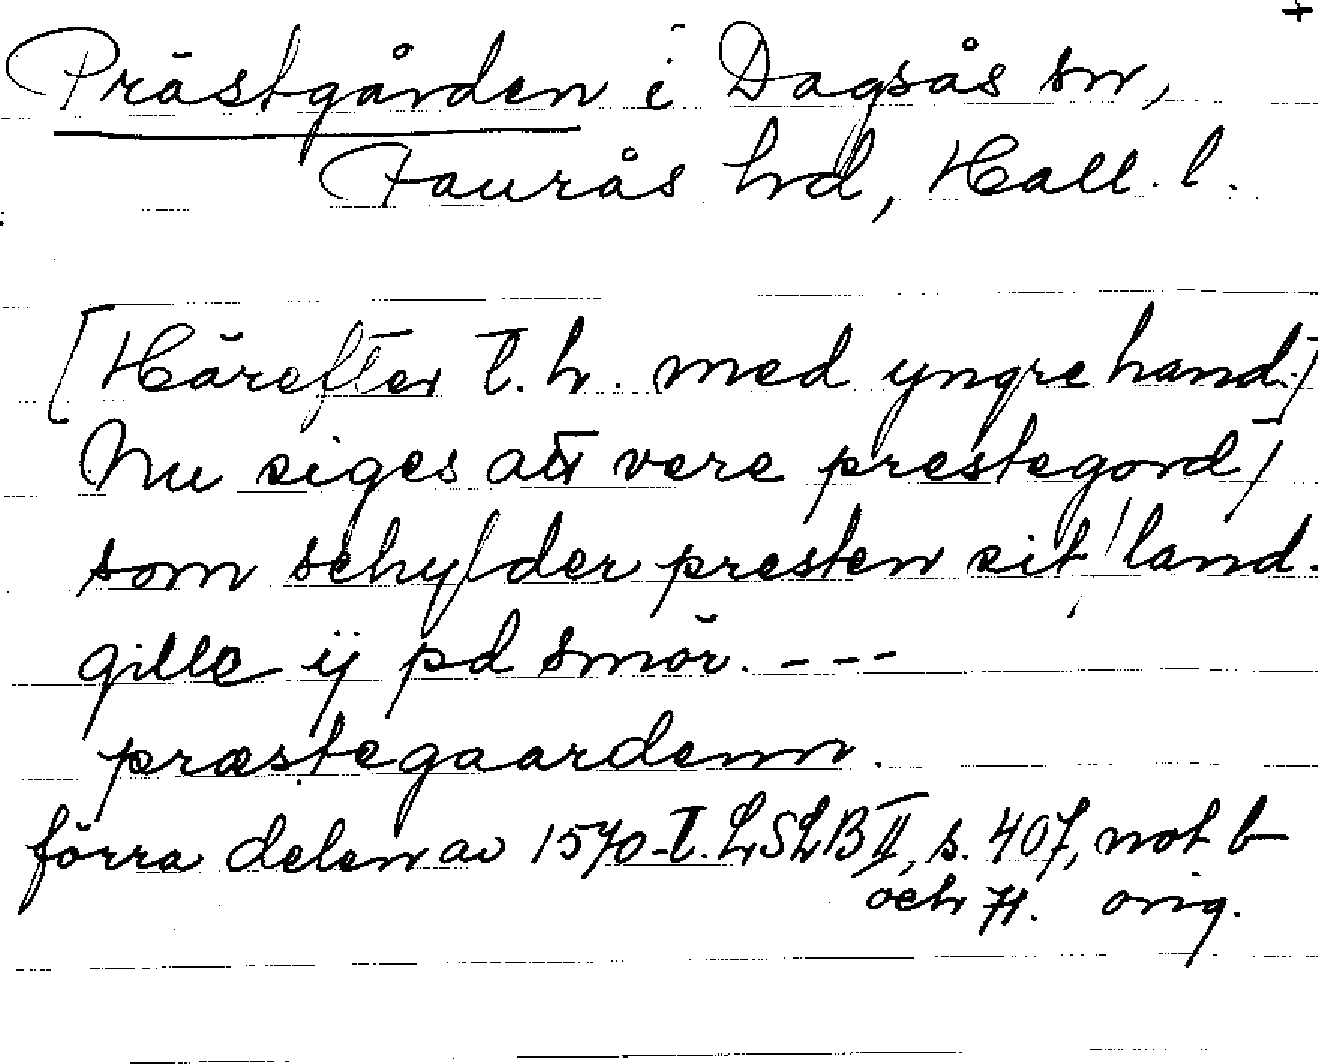 +
Prästgården i Dagsås sn,
Faurås hd, Hall. l.
[Härefter t. h. med yngre hand:]
Nu siges att vere prestegord,
som schylder presten sit land-
gille ij pd smör. - - -
præstegaardenn.
förra delen av 1570-t. LSLB II, s. 407, not b
och 71. orig.